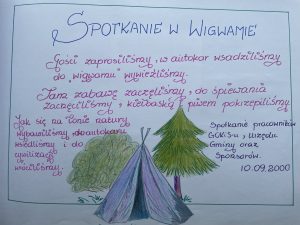 SPOTKANIE W WIGWAMIE
Gości zaprosiliśmy, w autokar wsadziliśmy
do wigwamu wywieźliśmy.
Tam zabawę zaczęliśmy, do śpiewania
zachęciliśmy, kiełbaską i piwem pokrzepiliśmy.
Jak się na łonie natury
wybawiliśmy, do autokaru
wsiedliśmy i do
cywilizacji
wróciliśmy.
Spotkanie pracowników
GOKiS-u, Urzędu
Gminy oraz
Sponsorów.
10.09.2000